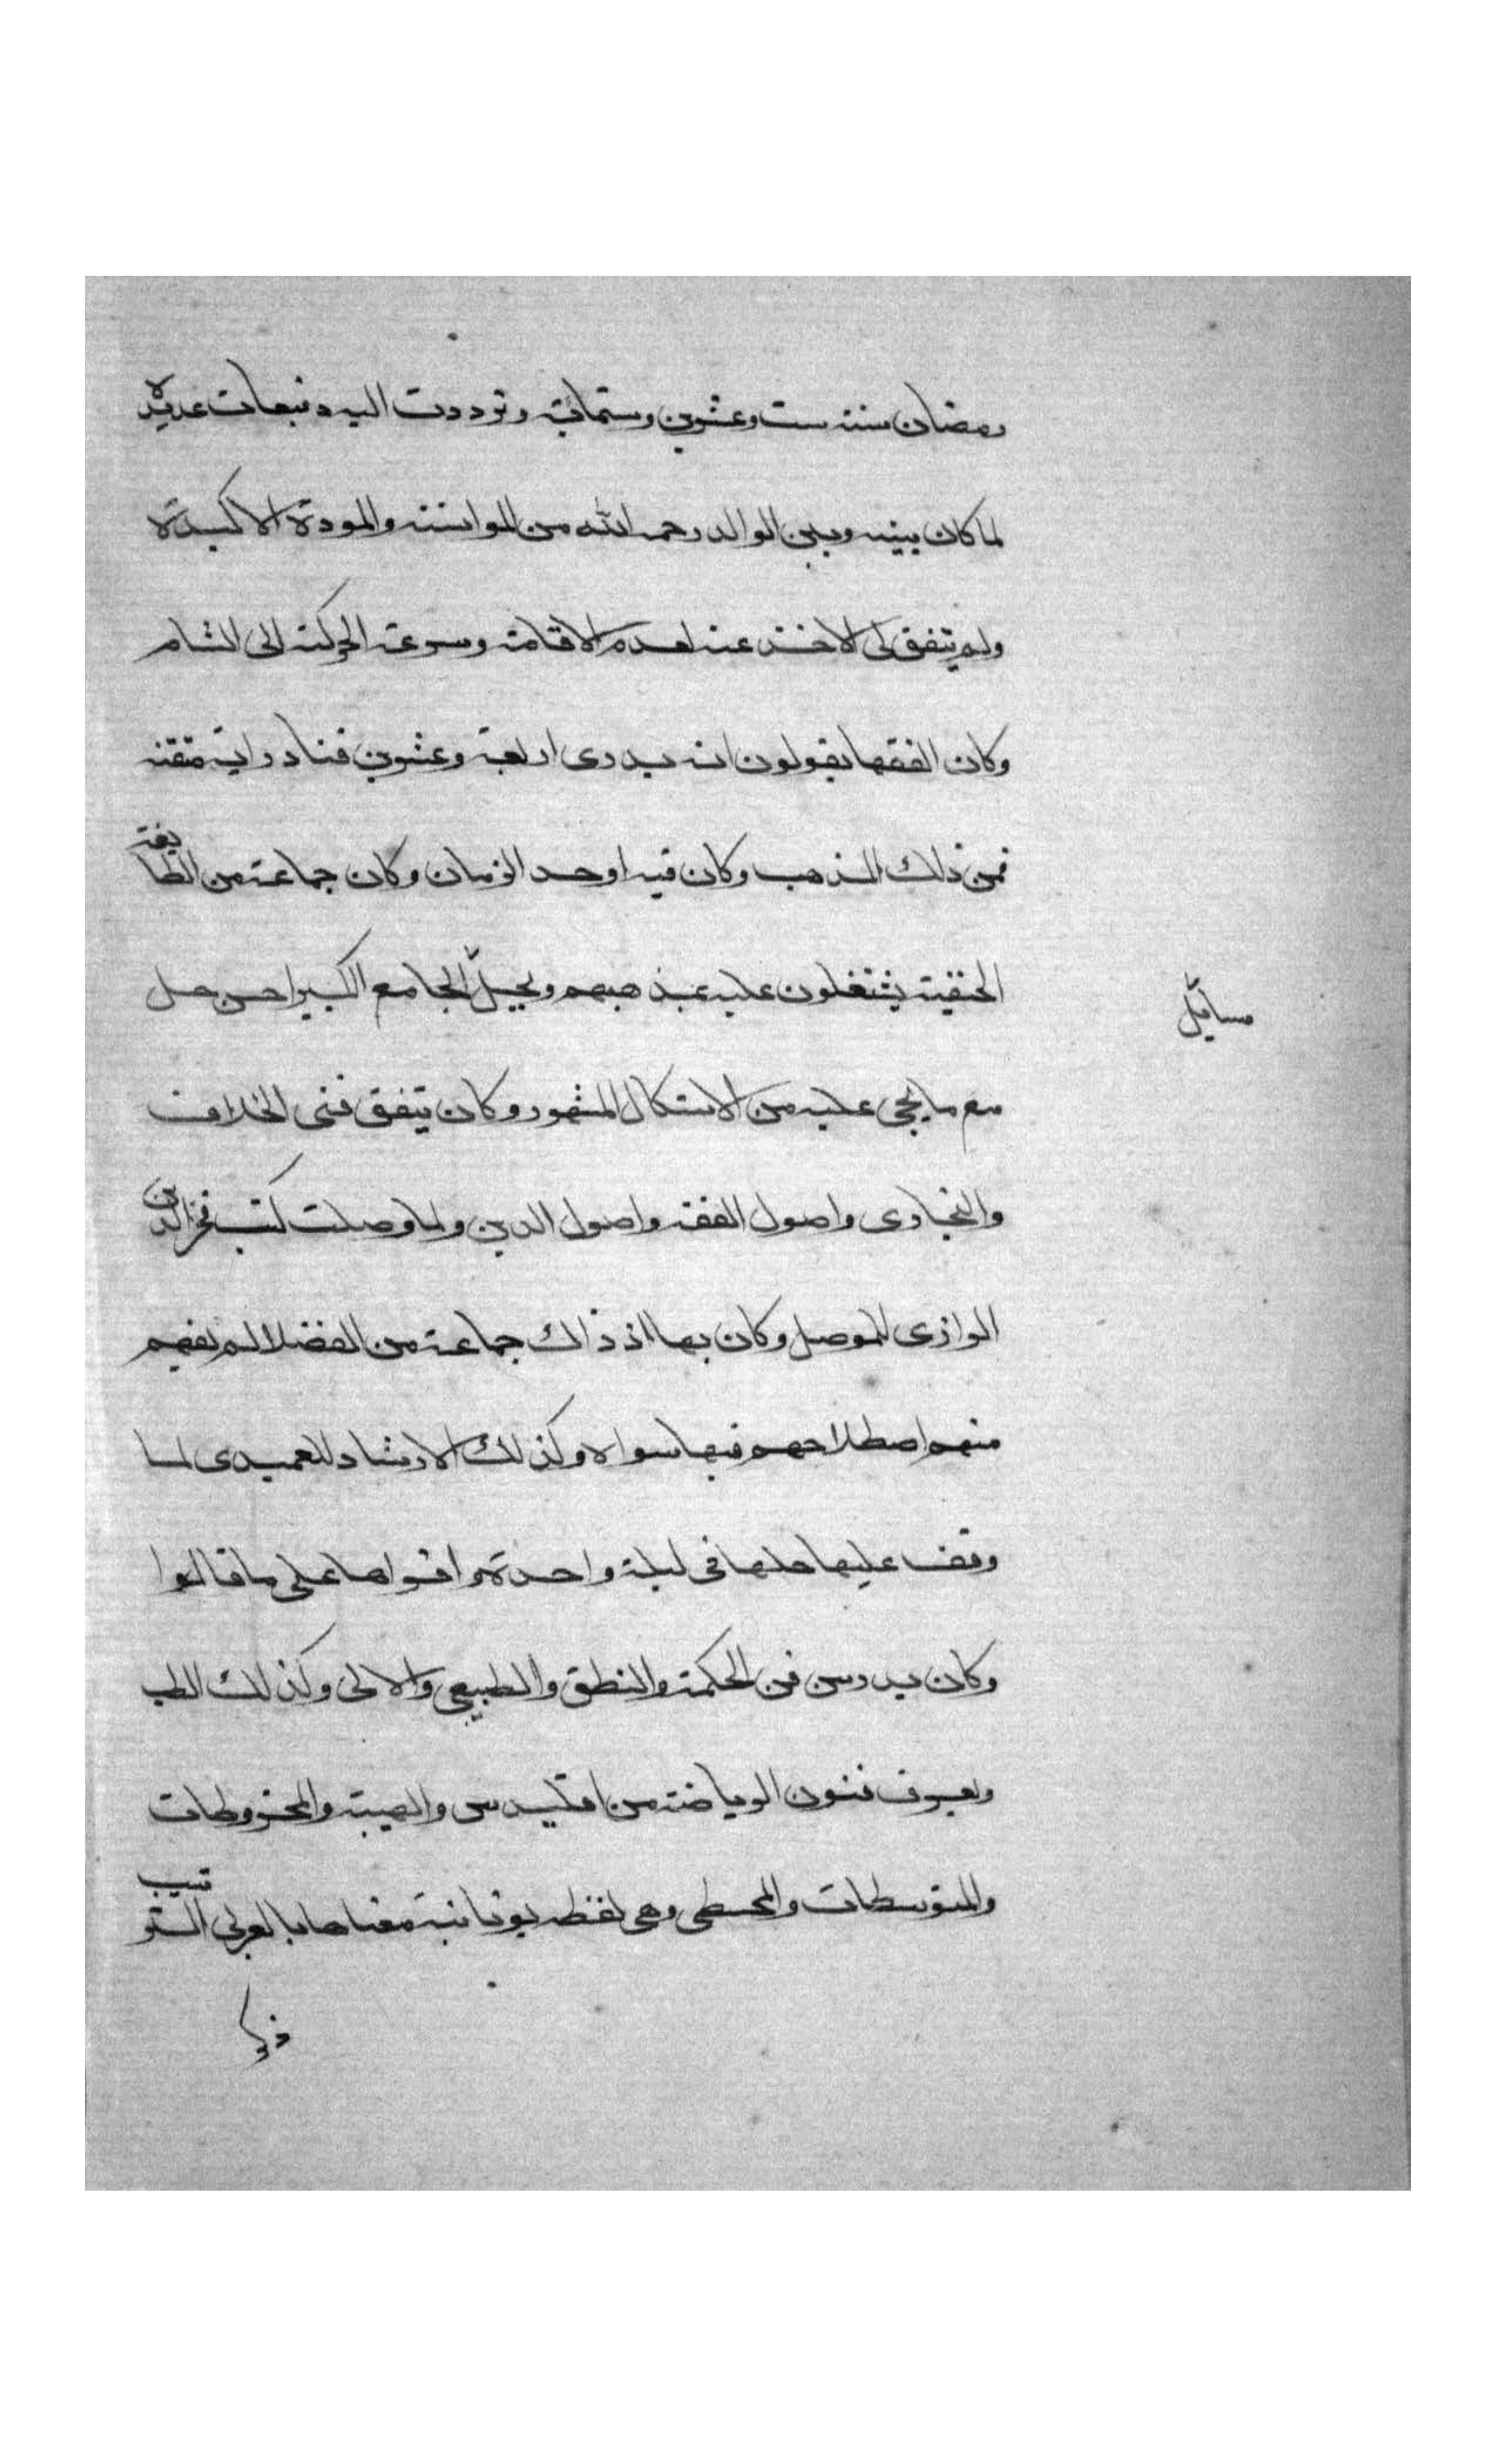 رمضان سنة ست وعشرين وستمائة وترددت اليه دفعات عديدة
لما كان بينه وبين الوالد رحمه الله من الموانسة والمودة الاكيدة
ولم يتفق لى الاخذ عنه لعدم الاقامة وسرعة الحركة الى الشام
وكان الفقها يقولون انه يدرى اربعة وعشرين فنا دراية متقنه
فمن ذلك المذهب وكان فيه اوحد الزمان وكان جماعة من الطايفة
الحنفية يشتغلون عليه بمذهبهم ويحلّ الجامع الكبير احسن حل
مسايل
مع ما يحى عليه من الاشكال المشهور وكان يتفق فنى الخلاف
والبخارى واصول الفقه واصول الدين ولما وصلت كتب فخر الدين
الرازى للموصل وكان بها اذ ذاك جماعة من الفضلا لم يفهم
منهم اصطلاحهم فيها سواه وكذلك الارشاد للعميدى لما
وقف عليها حلها فى ليلة واحدة واقراها على ما قالوا
وكان يدرس فن الحكمة والمنطق والطبيعى والالى وكذلك الطب
ويعرف فنون الرياضة من اقليدس والهيية والمخروطات
والمتوسطات والمجسطى وهى لفظه يونانية معناها بالعربى الترتيب
ذكر